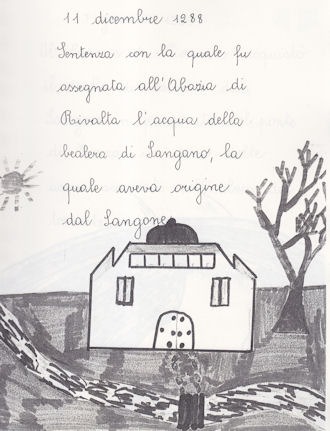 11 dicembre 1288
Sentenza con la quale fu
assegnata all'Abazia di
Rivalta l'acqua della
bealera di Sangano, la
quale aveva origine
dal Sangone